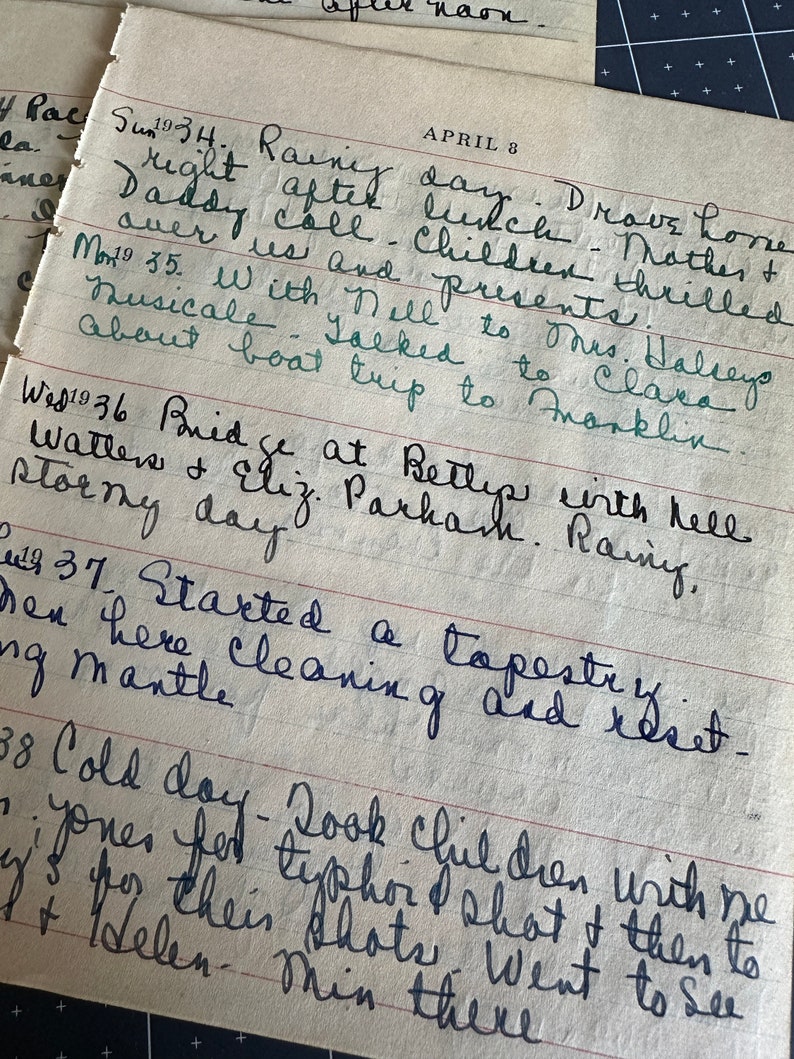 after noon.
APRIL 8
Sun 1934. Rainy day. Drove home
right after lunch - Mother +
Daddy call - Children thrilled
over us and presents.
Mon 1935. With Nell to Mrs. Halseys
Musicale - Talked to Clara
about boat trip to Franklin.
Wed 1936 Bridge at Bettys with Nell
Watters + Eliz. Parham. Rainy,
stormy day
1937. Started a tapestry.
men here cleaning and reset-
ng mantle
38 Cold day - Took children with me
Jones for typhoid shot + then to
y's for their shots. Went to see
+ Helen - Min there